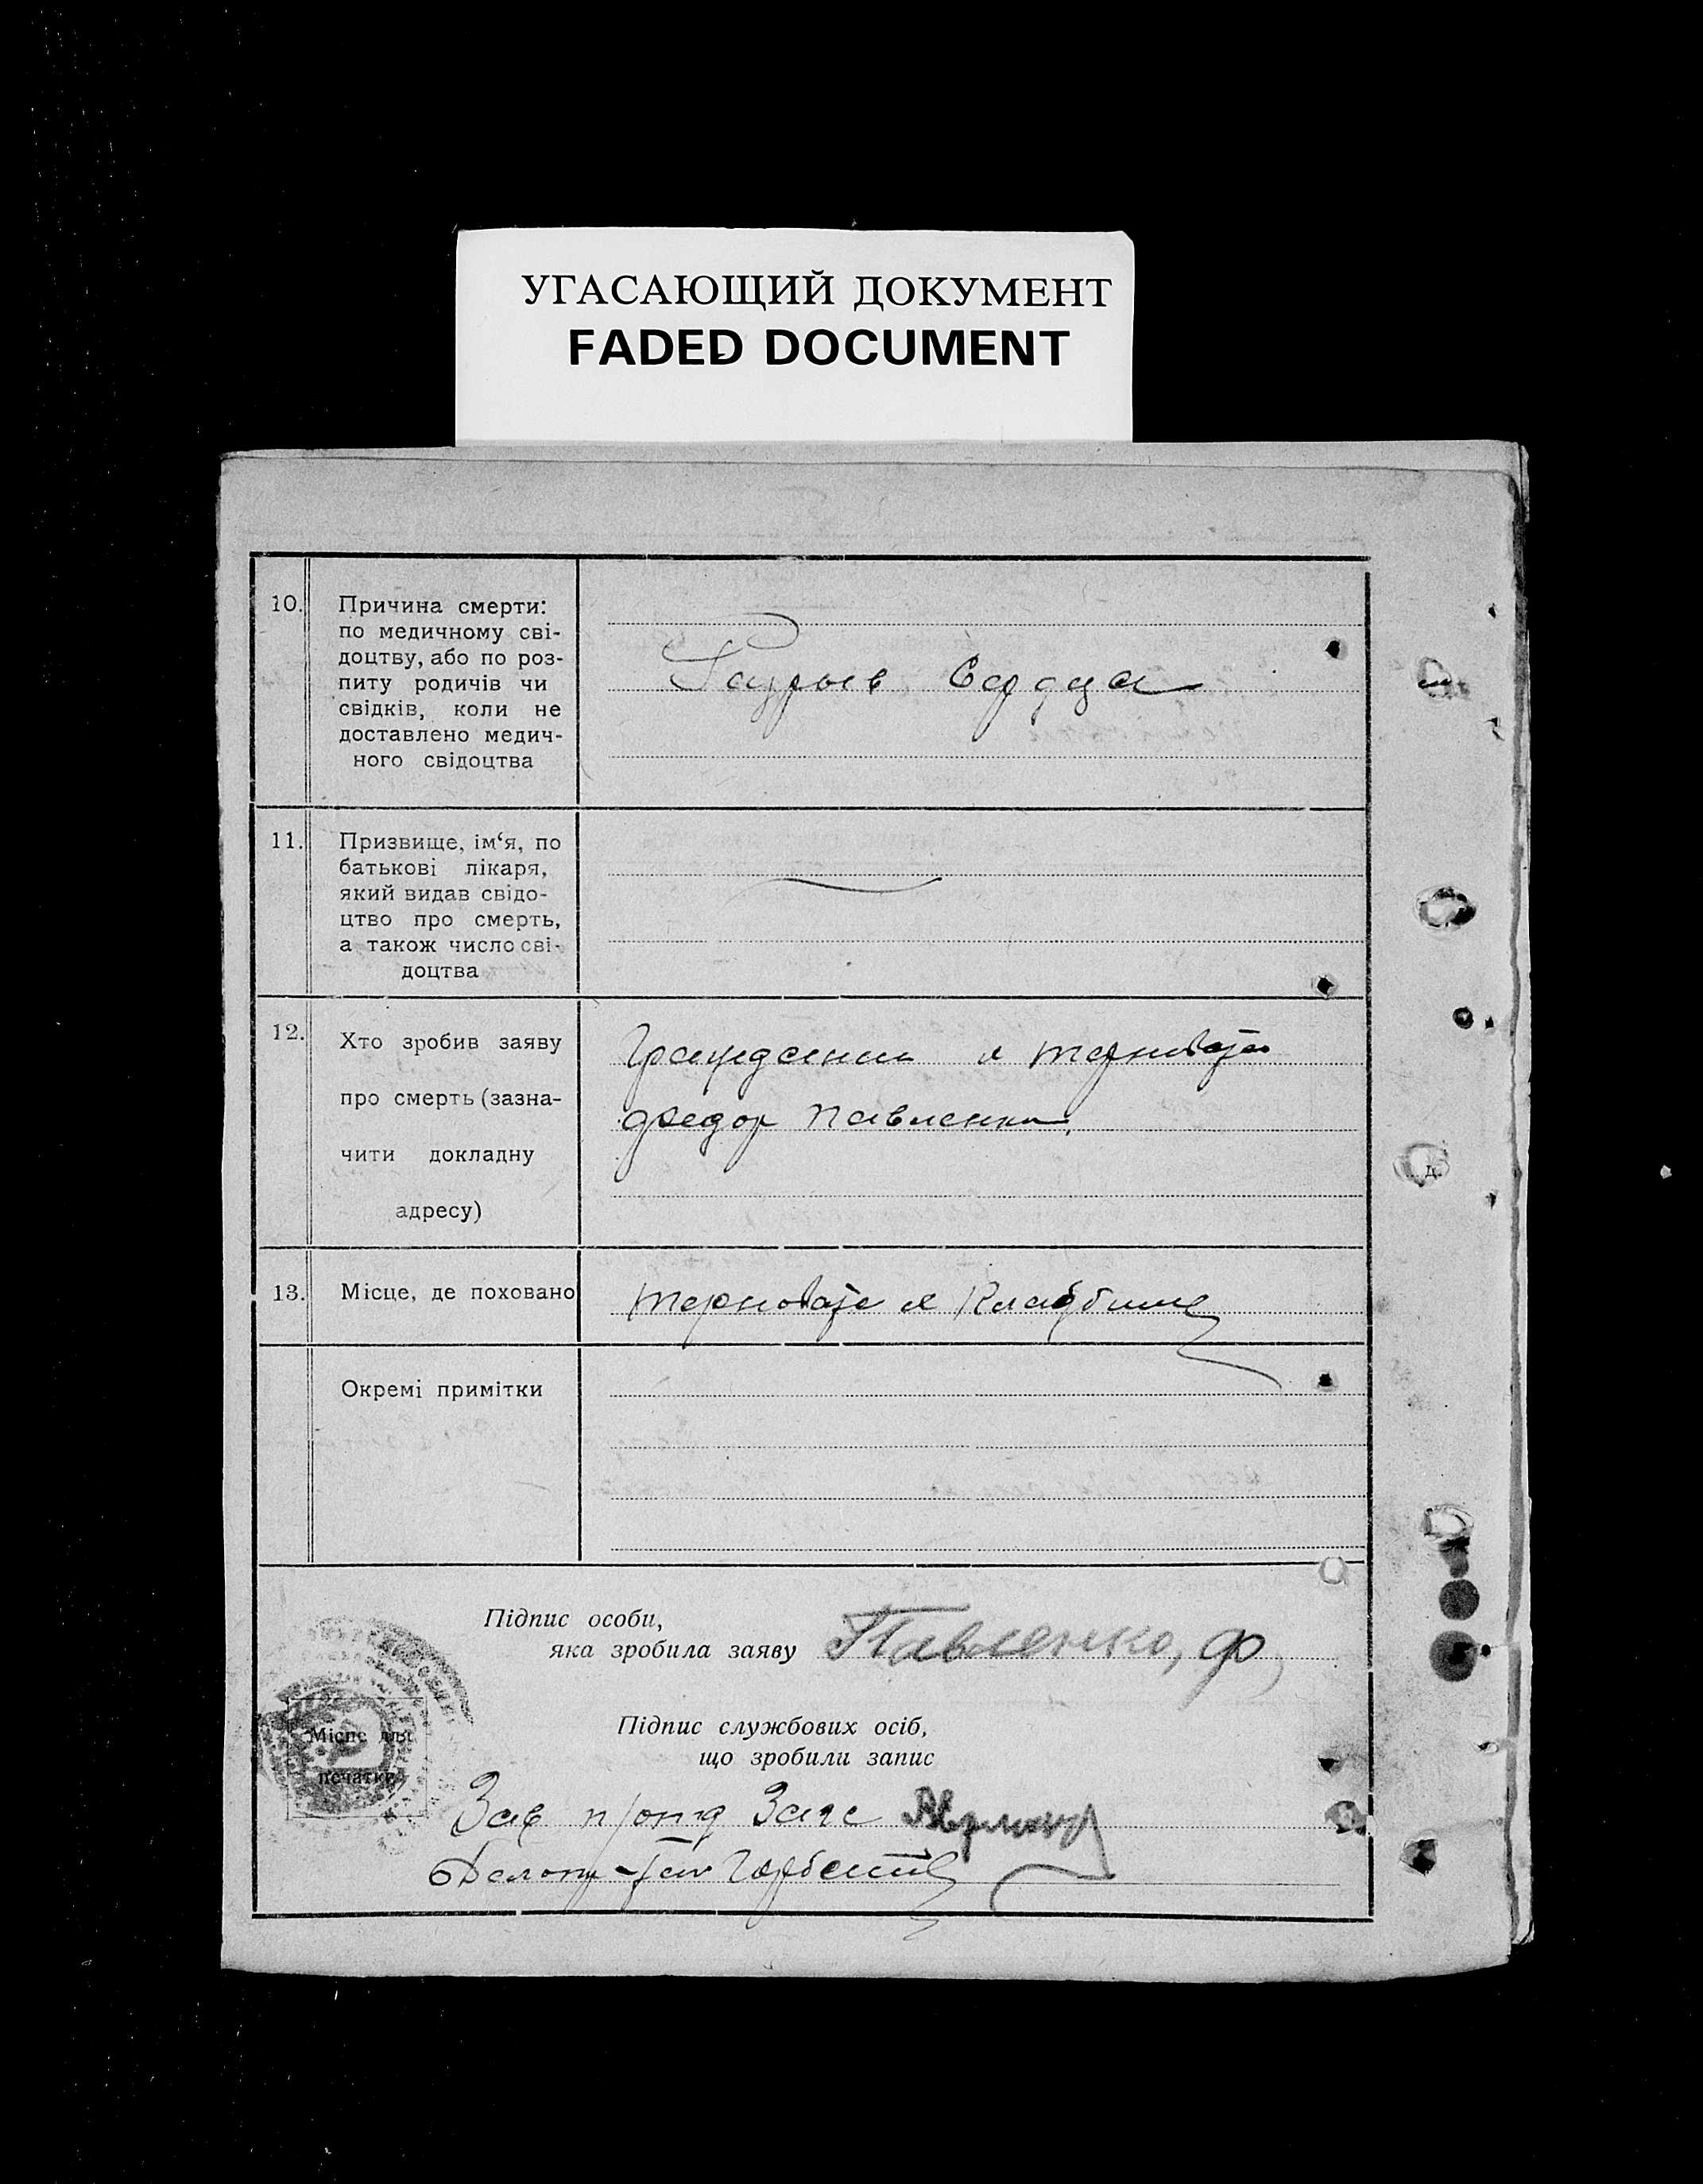 УГАСАЮЩИЙ ДОКУМЕНТ
FADED DOCUMENT
10. Причина смерти:
по медичному сві-
доцтву, або по роз-
питу родичів чи
свідків, коли не
доставлено медич-
ного свідоцтва
Сердца
11. Призвище, ім‘я, по
батькові лікаря,
який видав свідо-
цтво про смерть,
а також число сві-
доцтва
12. Хто зробив заяву
про смерть (зазна-
чити докладну
адресу)
Гражданин
Федор Павленко,
13. Місце, де поховано
Окремі примітки
Підпис особи,
яка зробила заяву Павленко, Ф
Місце для
печатки
Підпис службових осіб,
що зробили запис
Зав. Загс